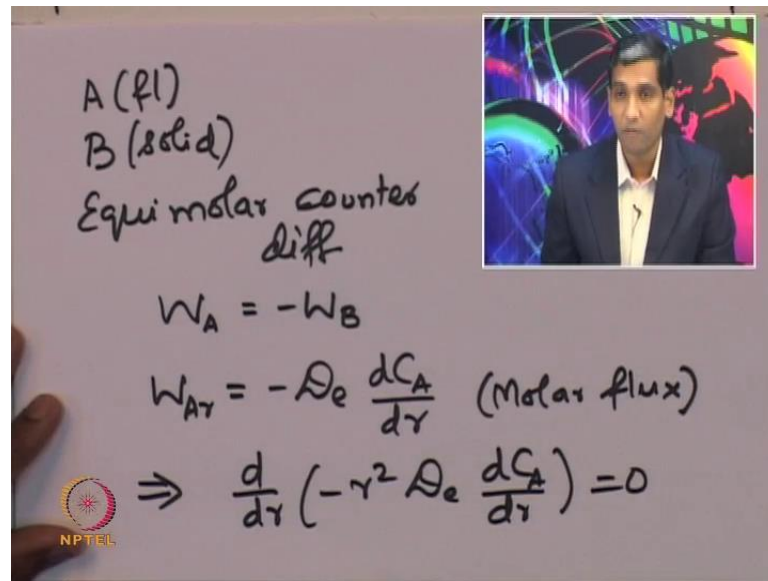 A (fl)
B (solid)
Equimolar counter
diff
W_A = -W_B
W_Ar = -D_e dC_A/dr (Molar flux)
⇒ d/dr (-r² D_e dC_A/dr) = 0
NPTEL